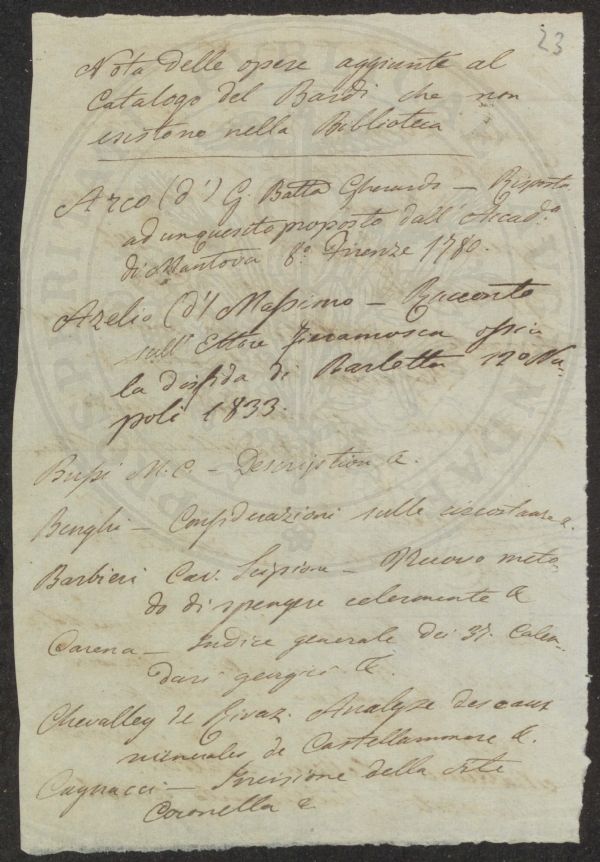 23
Nota delle opere aggiunte al
Catalogo del Bardi che non
esistono nella Biblioteca
Arco (d') G. Batta Gherardo — Risposta
ad un quesito proposto dall'Accad.a
di Mantova 8.o Firenze 1780.
Azelio (d') Massimo — Racconto
sull'Ettore Fieramosca ossia
la disfida di Barletta 12o Na-
poli 1833.
M. C. — Description &.
— Considerazioni sulle circostanze &.
Barbieri Cav. Scipione — Nuovo meto-
do di spengere celermente &
Carena — Indice generale dei 37. Calen-
dari georgici &.
Chevalley de Rivaz. Analyse des eaux
minerales de Castellammare &.
Cagnacci — Incisione della Arte
Coronella &